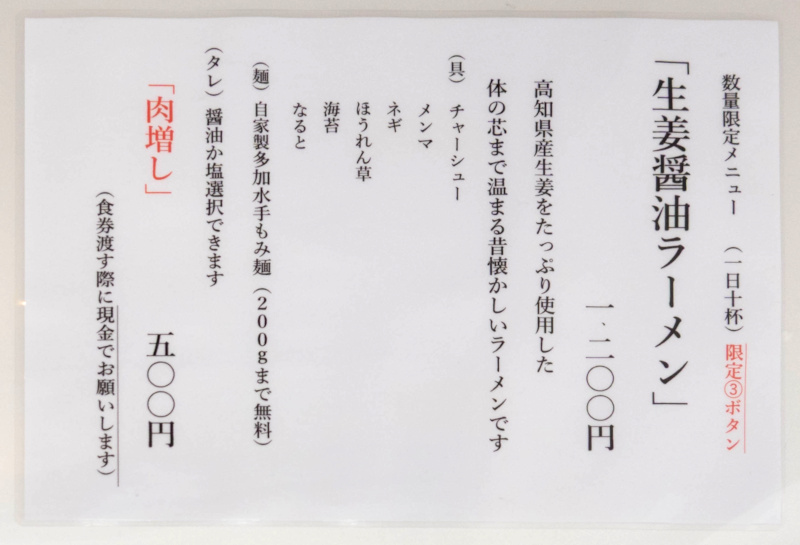 数量限定メニュー （一日十杯）限定③ボタン
「生姜醤油ラーメン」
一、二〇〇円
高知県産生姜をたっぷり使用した
体の芯まで温まる昔懐かしいラーメンです
（具） チャーシュー
メンマ
ネギ
ほうれん草
海苔
なると
（麺） 自家製多加水手もみ麺（200gまで無料）
（タレ） 醤油か塩選択できます
「肉増し」 五〇〇円
（食券渡す際に現金でお願いします）